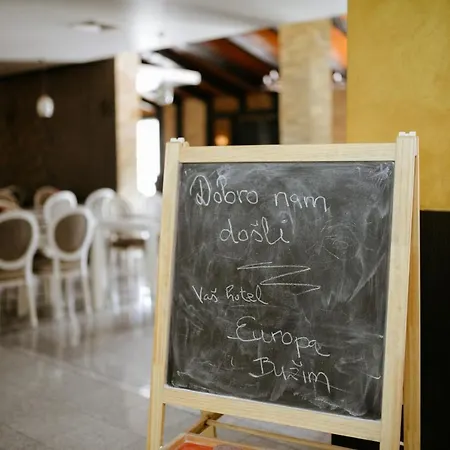 Dobro nam
došli
Vaš hotel
Europa
Bužim